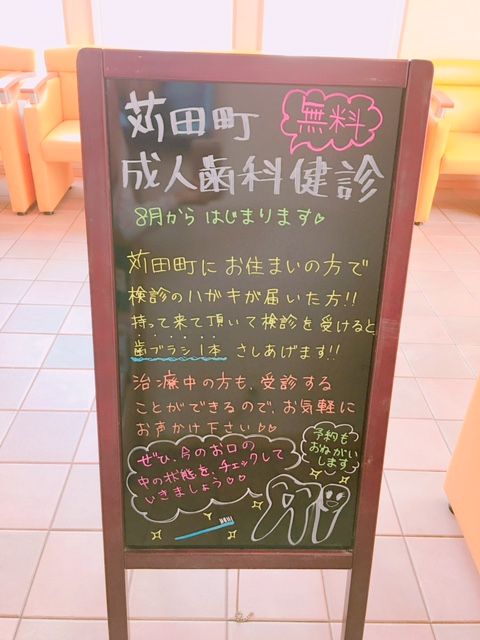 苅田町
無料
成人歯科健診
8月から はじまります♡
苅田町に お住まいの方で
検診のハガキが届いた方!!
持って来て頂いて検診を受けると
歯ブラシ1本 さしあげます!!
治療中の方も、受診する
ことができるので、お気軽に
お声かけ下さい♡♡
予約も
おねがい
します
ぜひ、今のお口の
中の状態を、チェックして
いきましょう♡♡